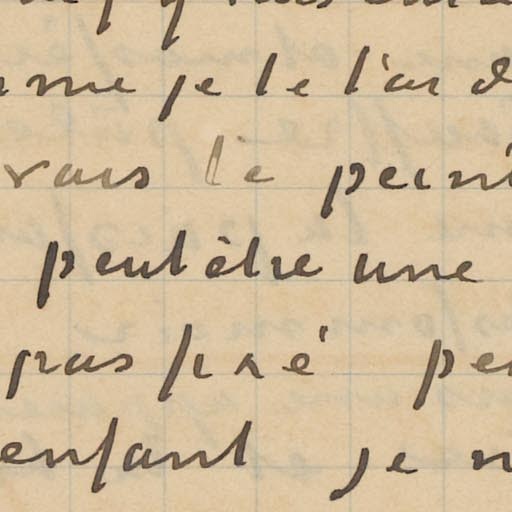 me je te l'ai d
vais le pein
peut être une
pas fixé pe
enfant je n